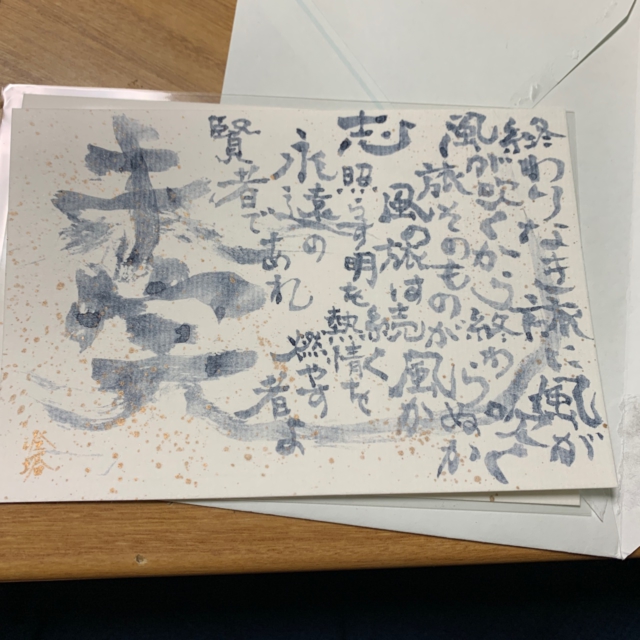 終わりなき旅に風が
風が吹くから終わ
旅そのものが らぬか
風の旅は続く風か
志
照らす明を熱情を
燃やす者よ
永遠の
賢者であれ